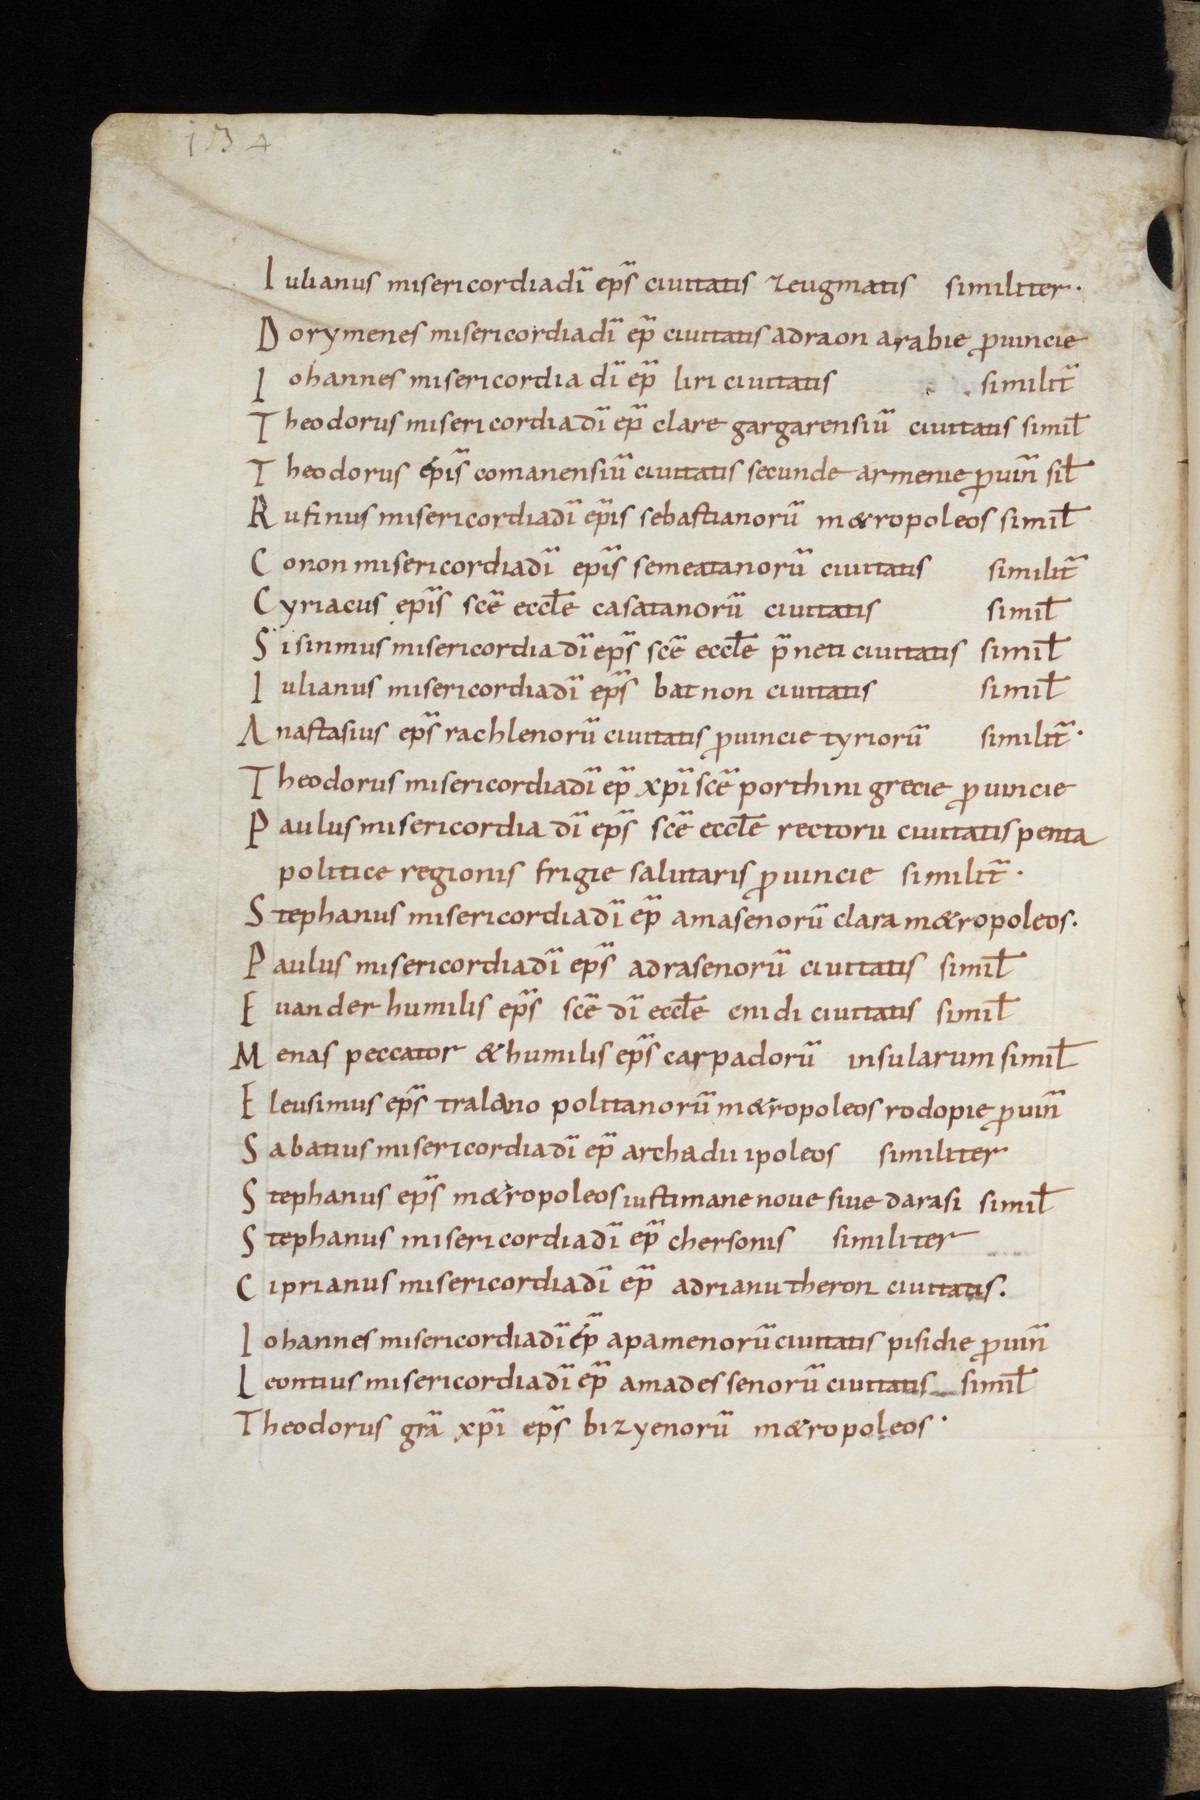 134
Iulianus misericordia dī ep̄s ciuitatis zeugmatis similiter·
Dorymenes misericordia dī ep̄ ciuitatis adraon arabie ꝓuincie
Iohannes misericordia dī ep̄ liri ciuitatis similit̄
Theodorus misericordia dī ep̄ clare gargarensiū ciuitatis simił
Theodorus ep̄is comanensiū ciuitatis secunde armenie ꝓuiñ sił
Rufinus misericordia dī ep̄is sebastianorū m&ropoleos simił
Conon misericordia dī ep̄is semeatanorū ciuitatis similit̄
Cyriacus ep̄is scē eccłe casatanorū ciuitatis simił
Sisinnius misericordia dī ep̄s scē eccłe p̄neti ciuitatis simił
Iulianus misericordia dī ep̄s batnon ciuitatis simił
Anastasius ep̄s rachlenorū ciuitatis ꝓuincie tyriorū similit̄·
Theodorus misericordia dī ep̄ xp̄i scē porthini grecie ꝓuincie
Paulus misericordia dī ep̄s scē eccłe rectoru ciuitatis penta
politice regionis frigie salutaris ꝓuincie similit̄·
Stephanus misericordia dī ep̄ amasenorū clara m&ropoleos·
Paulus misericordia dī ep̄s adrasenorū ciuitatis simił
Euander humilis ep̄s scē dī eccłe cnidi ciuitatis simił
Menas peccator & humilis ep̄s carpadorū insularum simił
Eleusimus ep̄s traleano politanorū m&ropoleos rodopie ꝓuiñ
Sabatius misericordia dī ep̄ archadiu ipoleos similiter
Stephanus ep̄s m&ropoleos iustiniane noue siue darasi simił
Stephanus misericordia dī ep̄ chersonis similiter
Ciprianus misericordia dī ep̄ adrianu theron ciuitatis.
Iohannes misericordia dī ep̄ apamenorū ciuitatis pisidie ꝓuiñ
Leontius misericordia dī ep̄ amadessenorū ciuitatis simił
Theodorus grā xp̄i ep̄s bizyenorū m&ropoleos·